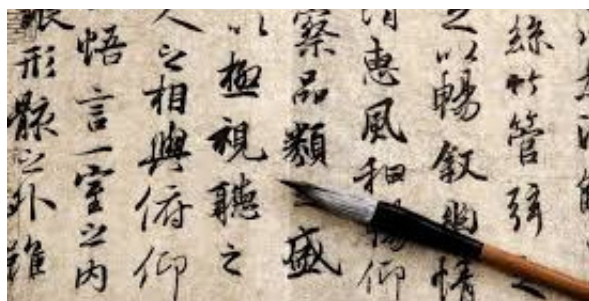 絲竹管弦之
足以暢敘幽情
清惠風和暢仰
察品類之盛
以極視聽之
人之相與俯仰
悟言一室之內
浪形骸之外雖